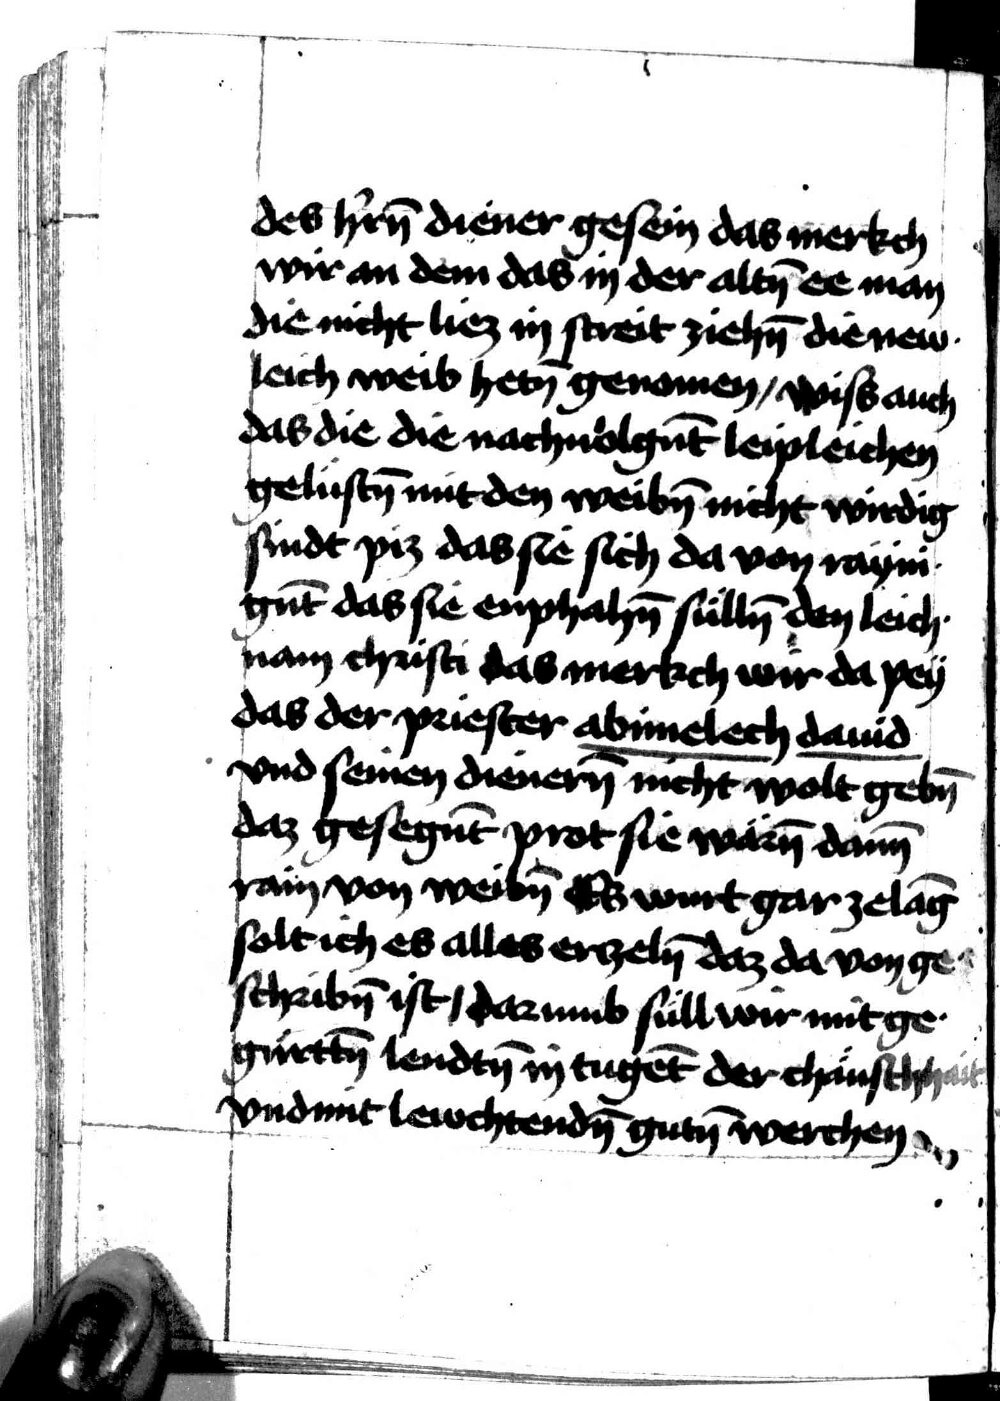 des hʼrn̄ diener gesein das merkch
wir an dem das in der altn̄ ee man
die nicht liez in streit ziehn̄ die new·
leich weib hetn̄ genomen / wiss auch
das die die nachuolgūt leipleichen
gelüstn̄ mit den weibn̄ nicht wirdig
sindt piz das sie sich da von rayni·
gūt das sie enphahn̄ sülln̄ den leich·
nam christi das merkch wir da pey
das der priester abimelech dauid
vnd seinen dienern̄ nicht wolt gebn̄
daz gesegūt prot sie wärn̄ dann̄
rain von weibn̄ Es wurt gar zelāg
solt ich es alles erzeln̄ daz da von ge·
schribn̄ ist / darumb süll wir mit ge·
gürttn̄ lendtn̄ in tugēt der chäuschhait
vnd mit lewchtendn̄ gutn̄ werchen